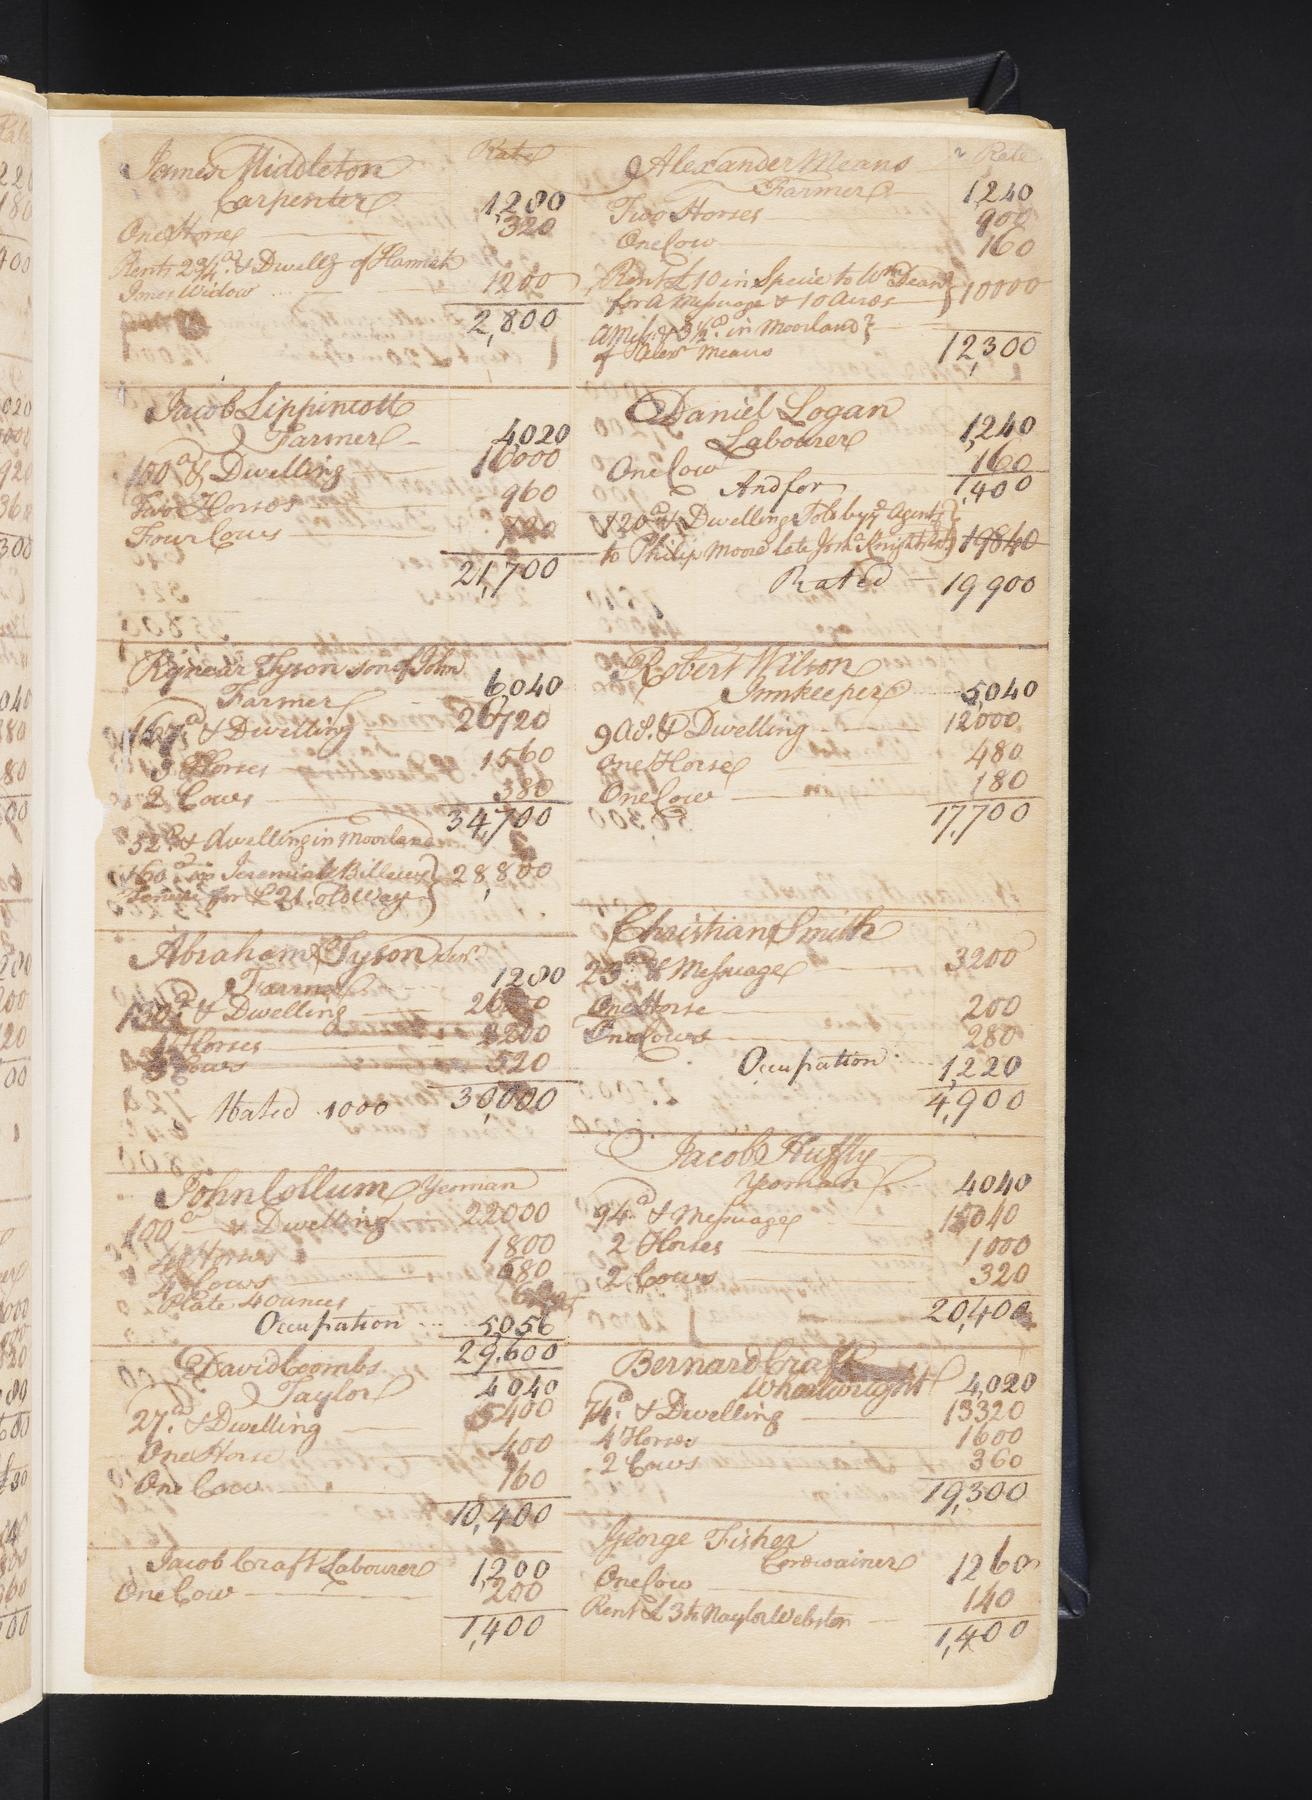 Rate
James Middleton
Carpenter 1,280
One Horse 320
Rents 2 3/4 a & Dwellg of Hannah
Jones Widow 1200
2,800
Jacob Lippincott
Farmer 4,020
100 a & Dwelling 16000
Two Horses 960
Four Cows 720
21,700
Rynear Tyson son of John
Farmer 6,040
167 a & Dwelling 26720
3 Horses 1560
2 Cows 380
34,700
52 a & dwelling in Moorland
160 a in Jeremiah Billews
Tenure for £21 old Way 28,800
Abraham Tyson
Farmer 1280
130 a & Dwelling
4 Horses
Cows 520
Rated 1000 30,000
John Collum Yeoman
100 a & Dwelling 22000
4 Horses 1800
4 Cows 680
Plate 4 ounces
Occupation 5,056
29,600
David Coombs
Taylor 4040
27 a & Dwelling 5400
One Horse 400
One Cow 160
10,400
Jacob Craft Labourer 1,200
One Cow 200
1,400
Rate
Alexander Means
Farmer 1,240
Two Horses 900
One Cow 160
Rent £10 in Specie to Wm Dean
for a Messuage & 10 Acres 10000
a Mesg & 3 1/2 a in Moorland
of Alexr Means 12,300
Daniel Logan
Labourer 1,240
One Cow 160
And for 1,400
120 a & Dwelling Sold by ye Agents
to Philip Moore late Knights 19840
Rated 19900
Robert Wilson
Innkeeper 5,040
9 as. & Dwelling 12000
One Horse 480
One Cow 180
17,700
Christian Smith
23 a & Messuage 3200
One Horse 200
One Cows 280
Occupation 1,220
4,900
Jacob Huffty
Yeoman 4040
94 a & Messuage 15040
2 Horses 1000
2 Cows 320
20,400
Bernard Craft
Wheelwright 4,020
74 a & Dwelling 13320
4 Horses 1600
2 Cows 360
19,300
George Fisher
Cordwainer 1260
One Cow 140
Rent £3 to Naylor Webster
1,400